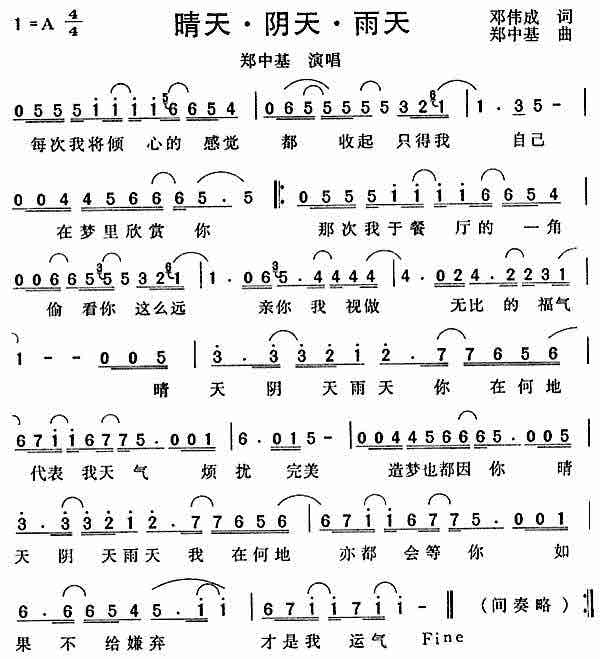 1=A 4/4 晴天·阴天·雨天 邓伟成 词
郑中基 曲
郑中基 演唱
0 5 5 5 5 i i i i 6 6 6 5 4 | 0 6 5 5 5 5 5 5 3 2 1 | 1 . 3 5 - |
每次我将倾 心的 感觉 都 收起 只得我 自己
0 0 4 4 5 6 6 6 5 . 5 ‖: 0 5 5 5 i i i i 6 6 5 4 |
在梦里欣赏 你 那次我于餐 厅的 一角
0 0 6 6 5 5 5 5 3 2 1 | 1 . 0 6 5 . 4 4 4 4 | 4 . 0 2 4 . 2 2 2 3 1 |
偷 看你 这么远 亲你 我 视做 无比 的 福气
1 - - 0 0 5 | 3 . 3 3 2 1 2 . 7 7 6 5 6 |
晴 天 阴 天雨天 你 在何地
6 7 i i 6 7 7 5 . 0 0 1 | 6 . 0 1 5 - | 0 0 4 4 5 6 6 6 5 . 0 0 5 |
代表 我天 气 烦 扰 完美 造梦也都因 你 晴
3 . 3 3 2 1 2 . 7 7 6 5 6 | 6 7 i i 6 7 7 5 . 0 0 1 |
天 阴 天雨天 我 在何地 亦都 会等 你 如
6 . 6 6 5 4 5 . i i | 6 7 i i 7 i i - ‖ (间奏略) :‖
果 不 给嫌弃 才是我 运气 Fine